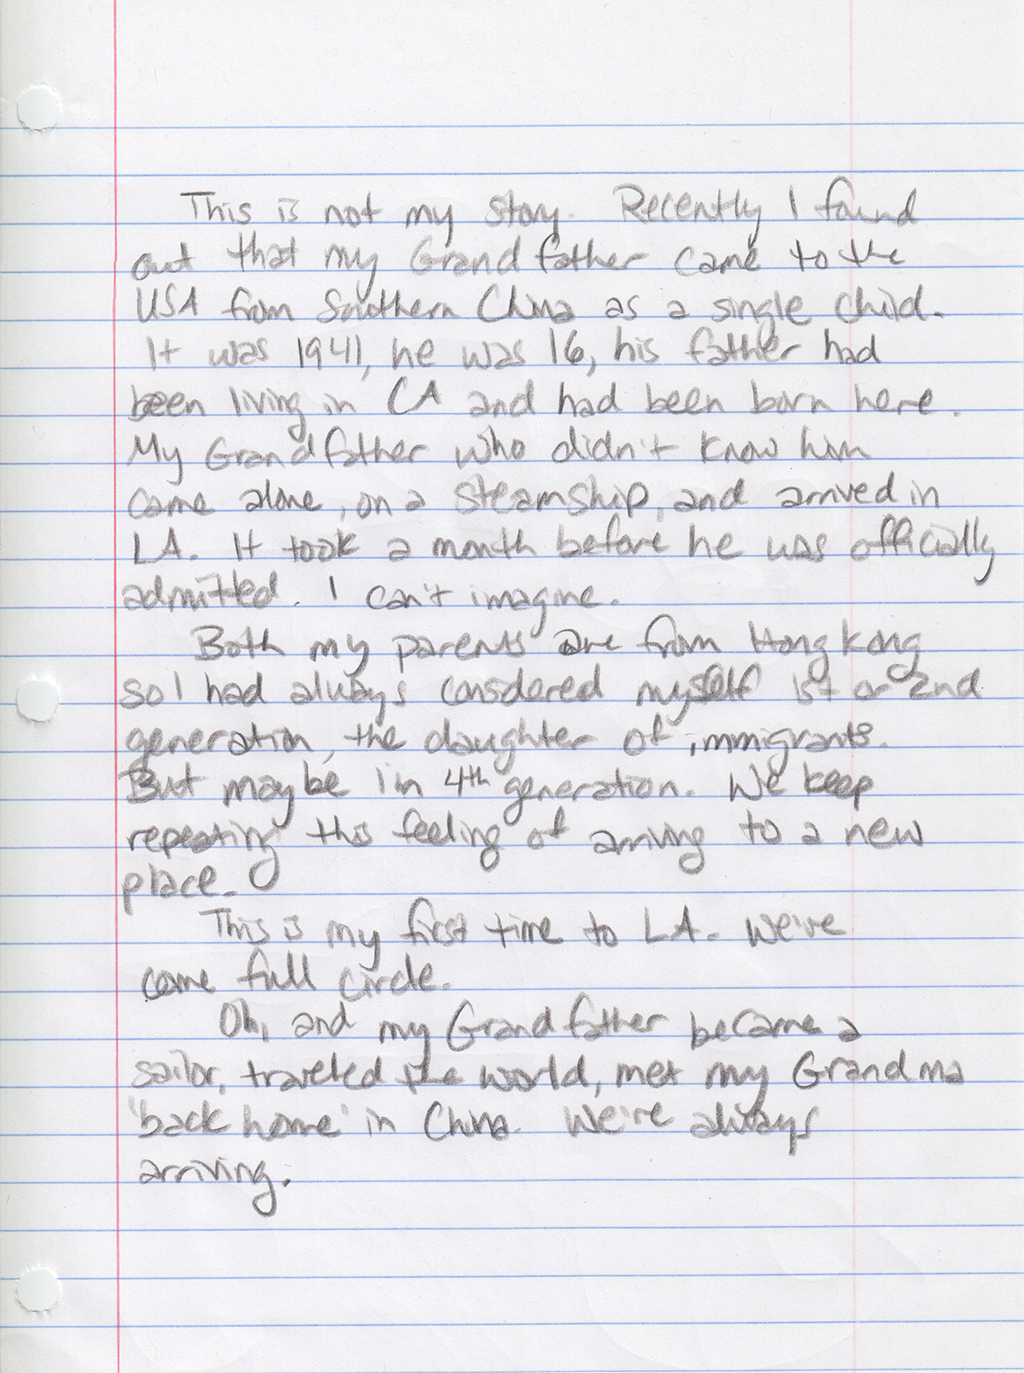 This is not my story. Recently I found
out that my Grandfather came to the
USA from Southern China as a single child.
It was 1941, he was 16, his father had
been living in CA and had been born here.
My Grandfather who didn't know him
came alone, on a steamship, and arrived in
LA. It took a month before he was officially
admitted. I can't imagine.
Both my parents are from Hong Kong
so I had always considered myself 1st or 2nd
generation, the daughter of immigrants.
But maybe I'm 4th generation. We keep
repeating this feeling of arriving to a new
place.
This is my first time to LA. We've
come full circle.
Oh, and my Grandfather became a
sailor, traveled the world, met my Grandma
'back home' in China. We're always
arriving.